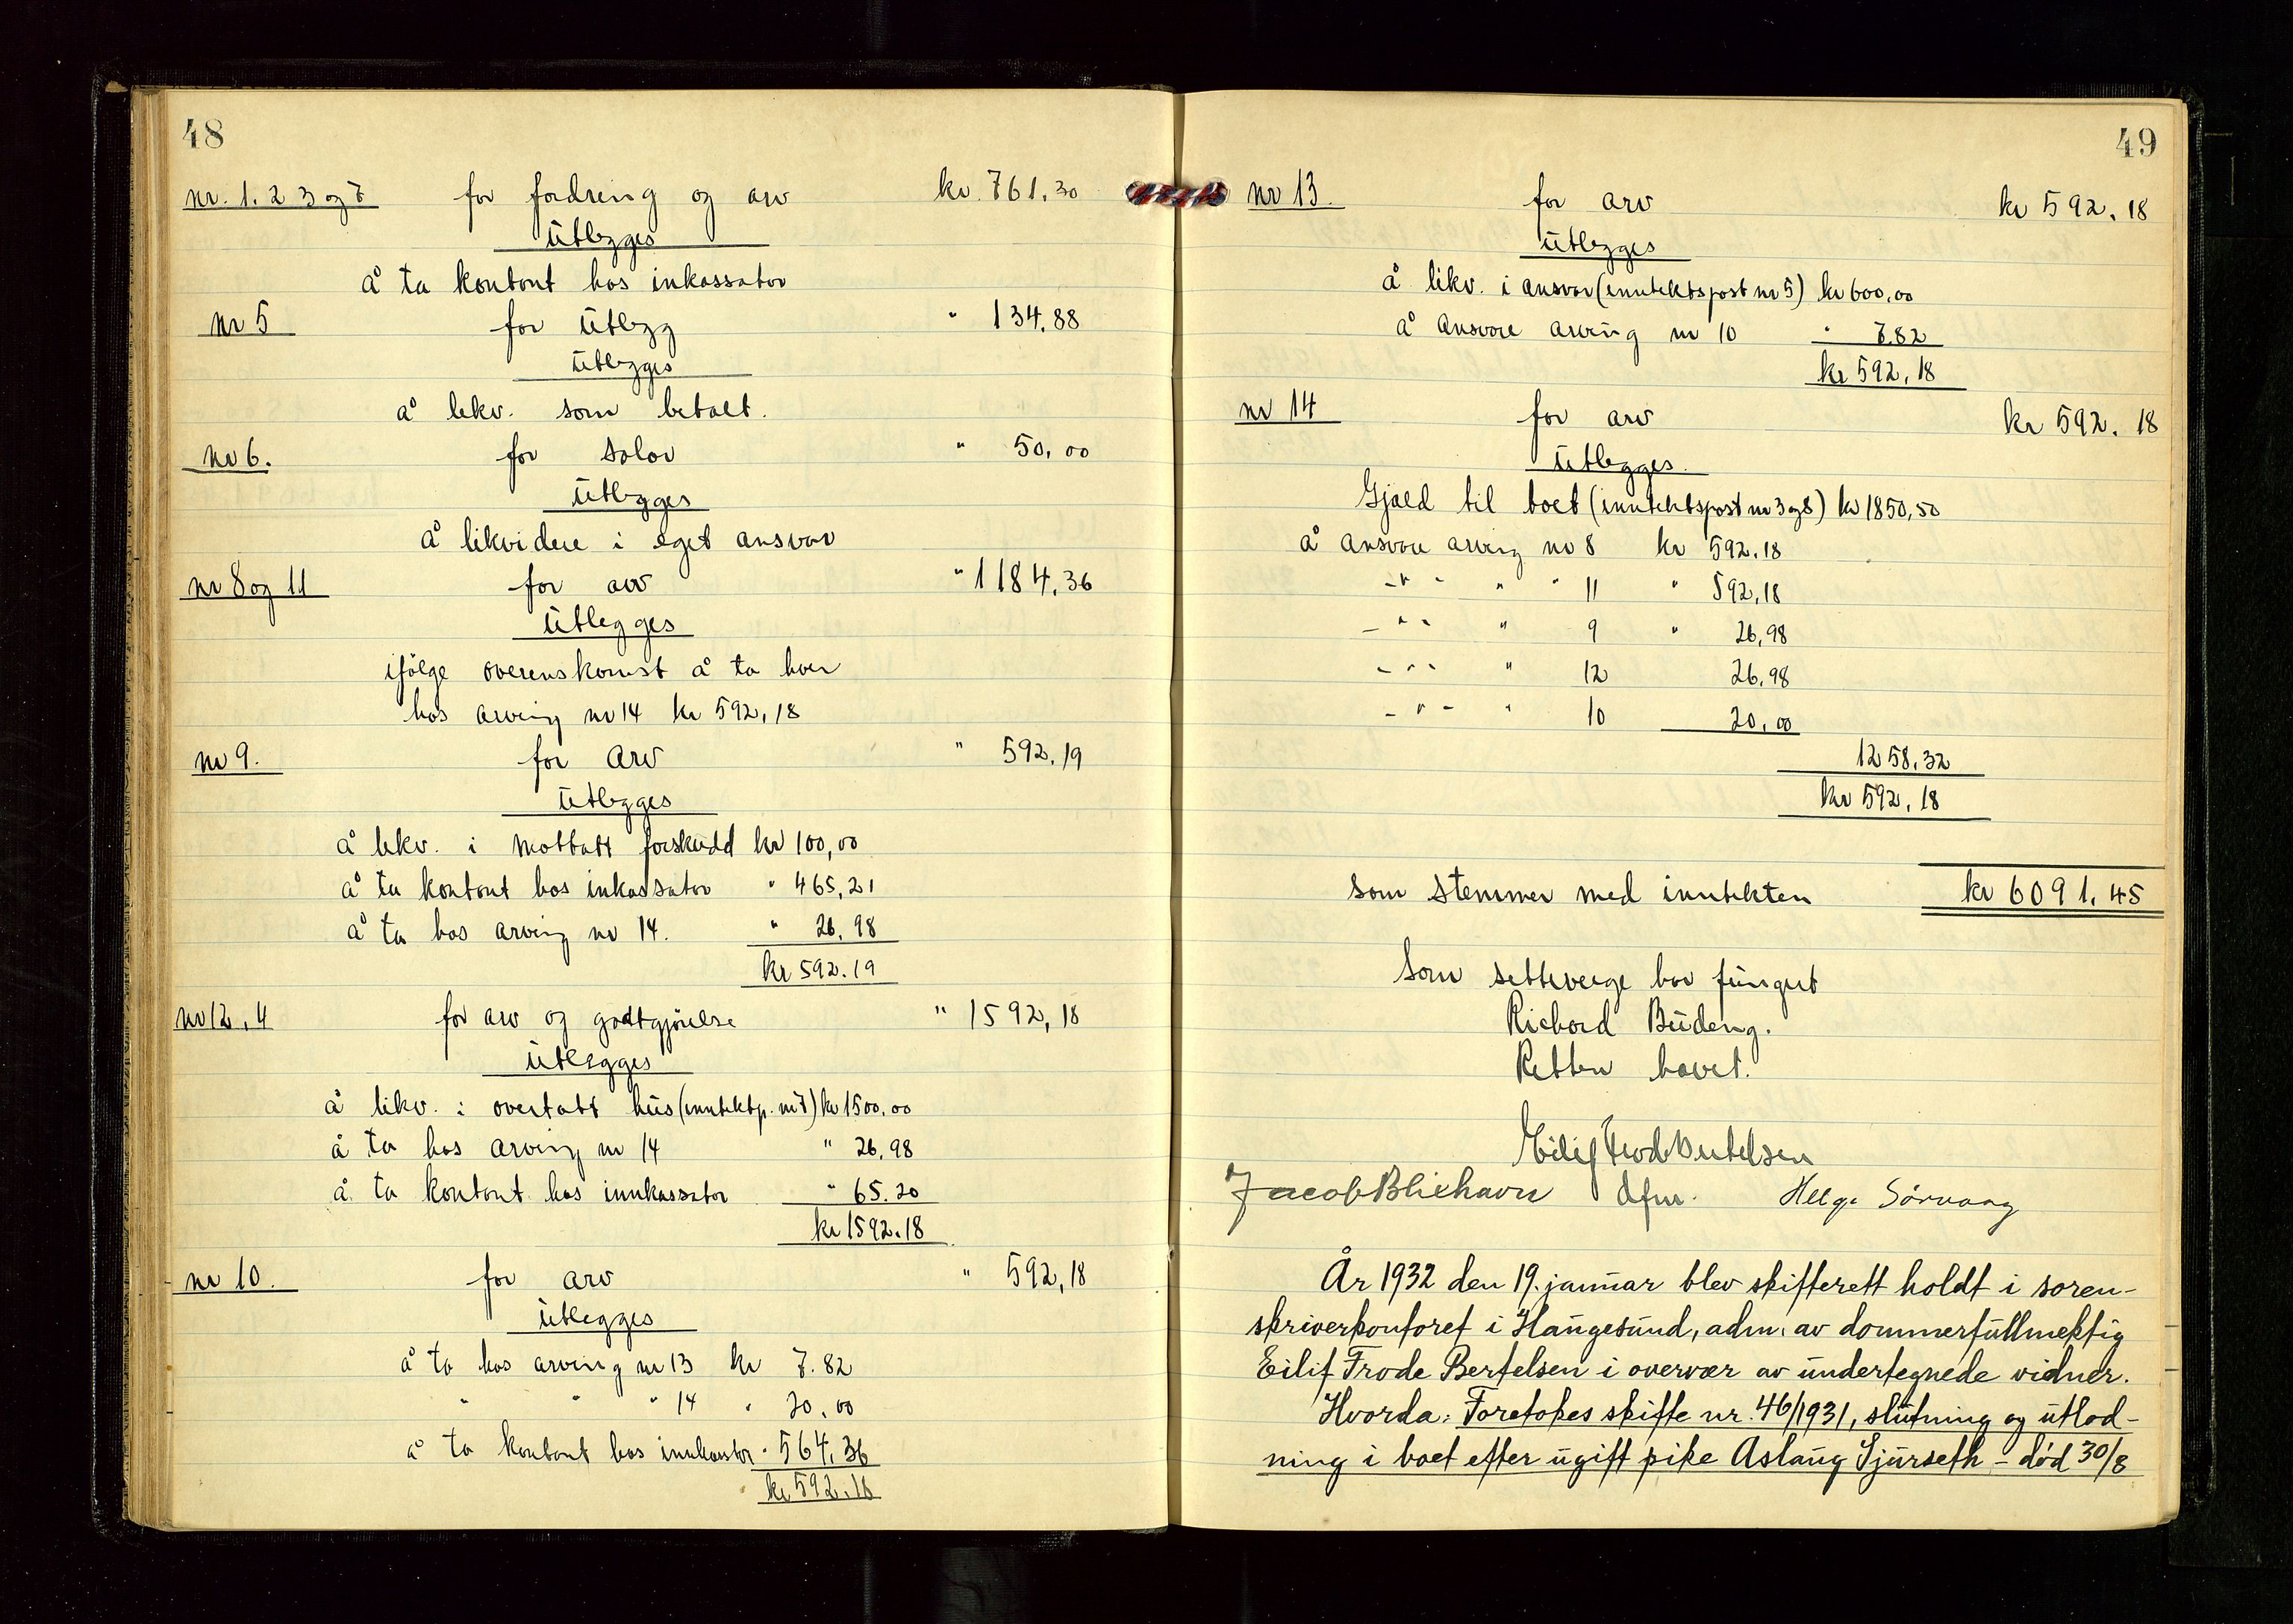 48
nr. 1. 2 3 og 7 for fordring og arv kr. 761,30
Utlegges
å ta kontant hos inkassator
nr 5 for Utlegg " 134,88
Utlegges
å likv. som betalt.
nr 6. for salær " 50,00
Utlegges
å likvidere i eget ansvar
nr 8 og 11 for arv " 1184,36
Utlegges
ifölge overenskomst å ta hver
hos arving nr 14 kr 592,18
nr 9. for arv " 592,19
Utlegges
å likv. i mottatt forskudd kr 100,00
å ta kontant hos inkassator " 465,21
å ta hos arving nr 14. " 26,98
kr 592.19
nr 12, 4 for arv og godtgjörelse " 1592,18
Utlegges
å likv. i overtatt hus (inntektp. nr 7) kr 1500,00
å ta hos arving nr 14 " 26,98
å ta kontant hos innkassator " 65.20
kr 1592.18
nr 10. for arv " 592,18
Utlegges
å ta hos arving nr 13 kr 7.82
" " " 14 " 20,00
å ta kontant hos " 564,36
kr 592.18
49
nr 13. for arv kr 592,18
Utlegges
å likv. i ansvar (inntektspost nr 5) kr 600,00
å ansvare arving nr 10 " 7.82
kr 592,18
nr 14 for arv kr 592.18
Utlegges.
Gjæld til boet (inntektspost nr 3 og 8) kr 1850,50
å ansvare arving nr 8 kr 592.18
-"- " " 11 " 592,18
-"- " 9 " 26,98
-"- " 12 26,98
-"- " 10 20,00
1258,32
kr 592,18
som stemmer med inntekten kr 6091,45
Som setteverge har fungert
Richard Budeng.
Retten hævet.
Eilif Frode Bertelsen
Jacob Bliehavn dfm. Helge Sørvaag
År 1932 den 19. januar blev skifterett holdt i soren-
skriverkontoret i Haugesund, adm. av dommerfullmektig
Eilif Frode Bertelsen i overvær av undertegnede vidner.
Hvorda: Foretokes skifte nr. 46/1931, slutning og utlod-
ning i boet efter ugift pike Aslaug Sjurseth - død 30/8